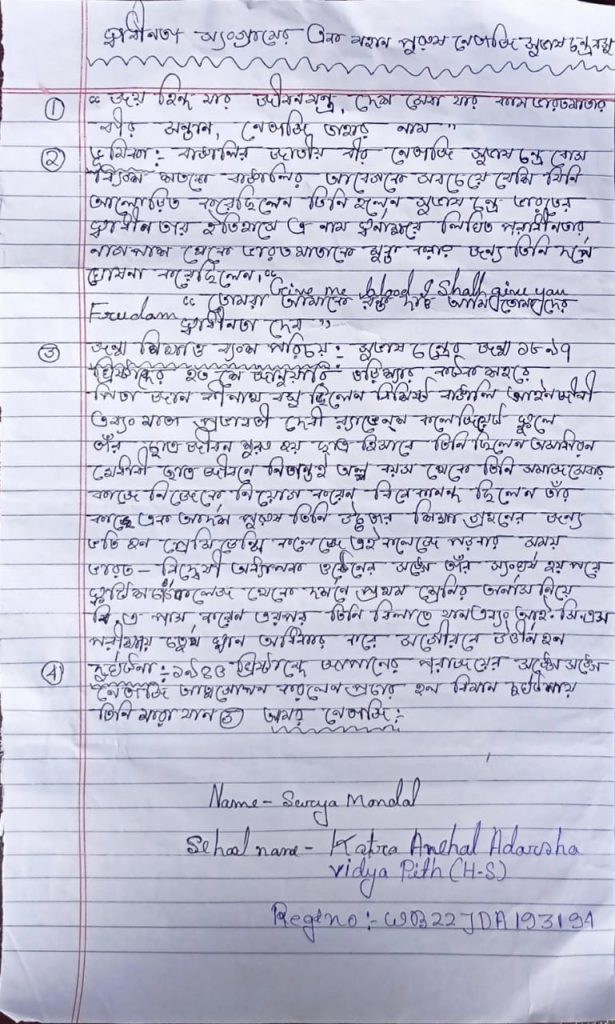 স্বাধীনতা সংগ্রামের এক মহান পুরুষ নেতাজি সুভাষ চন্দ্র বসু
① "জয় হিন্দ যার জীবনমন্ত্র, দেশ সেবা যার কাম ভারতমাতার
বীর সন্তান, নেতাজি তাহার নাম"
② ভূমিকা: বাঙালির জাতীয় বীর নেতাজি সুভাষ চন্দ্র বোস
বিংশ শতকে বাঙালির আবেগকে সবচেয়ে বেশি যিনি
আলোড়িত করেছিলেন তিনি হলেন সুভাষ চন্দ্র ভারতের
স্বাধীনতার ইতিহাসে এ নাম স্বর্ণাক্ষরে লিখিত পরাধীনতার
নাগপাশ থেকে ভারতমাতাকে মুক্ত করার জন্য তিনি দর্পে
ঘোষনা করেছিলেন, "Give me blood I Shall give you
Freedam "তোমরা আমাকে রক্ত দাও আমি তোমাদের
স্বাধীনতা দেব"
③ জন্ম শিক্ষাও বংশ পরিচয়: সুভাষ চন্দ্রের জন্ম ১৮৯৭
খ্রিষ্টাব্দের ২৩ শে জানুয়ারি উড়িষার কটক শহরে
পিতা জানকীনাথ বসু ছিলেন বিশিষ্ট বাঙালি আইনজীবী
এবং মাতা প্রভাবতী দেবী র‍্যাভেনশ কলেজিয়েট স্কুলে
তাঁর ছাত্র জীবন শুরু হয় ছাত্র হিসাবে তিনি ছিলেন অসাধারন
মেধাবী ছাত্র জীবনে নিতান্তই অল্প বয়স থেকে তিনি সমাজসেবার
কাজে নিজেকে নিয়োগ করেন বিবেকানন্দ ছিলেন তাঁর
কাছে এক আদর্শ পুরুষ তিনি উচ্চতর শিক্ষা গ্রহনের জন্য
ভর্তি হন প্রেসিডেন্সি কলেজে এই কলেজে পরবার সময়
ভারত- বিদ্বেষী অধ্যাপক ওটেনের সঙ্গে তাঁর সংঘর্ষ হয় পরে
স্কটিশচার্চ কলেজ থেকে দর্শনে প্রথম শ্রেনির অনার্স নিয়ে
বি.এ পাস করেন এরপর তিনি বিলাতে যান এবং আই. সি.এস
পরীক্ষায় চতুর্থ স্থান অধিকার করে সগৌরবে উত্তীর্ন হন
④ দুর্ঘটনা: ১৯৪৫ খ্রিষ্টাব্দে জাপানের পরাজয়ের সঙ্গে সঙ্গে
নেতাজি আত্মগোপন করলেন প্রচার হল বিমান দুর্ঘটনায়
তিনি মারা যান ⑤ অমর নেতাজি:-
Name- Surya Mondal
School name- Katra Anchal Adarsha
vidya Pith (H-S)
Regtno:- WB22JDA193194